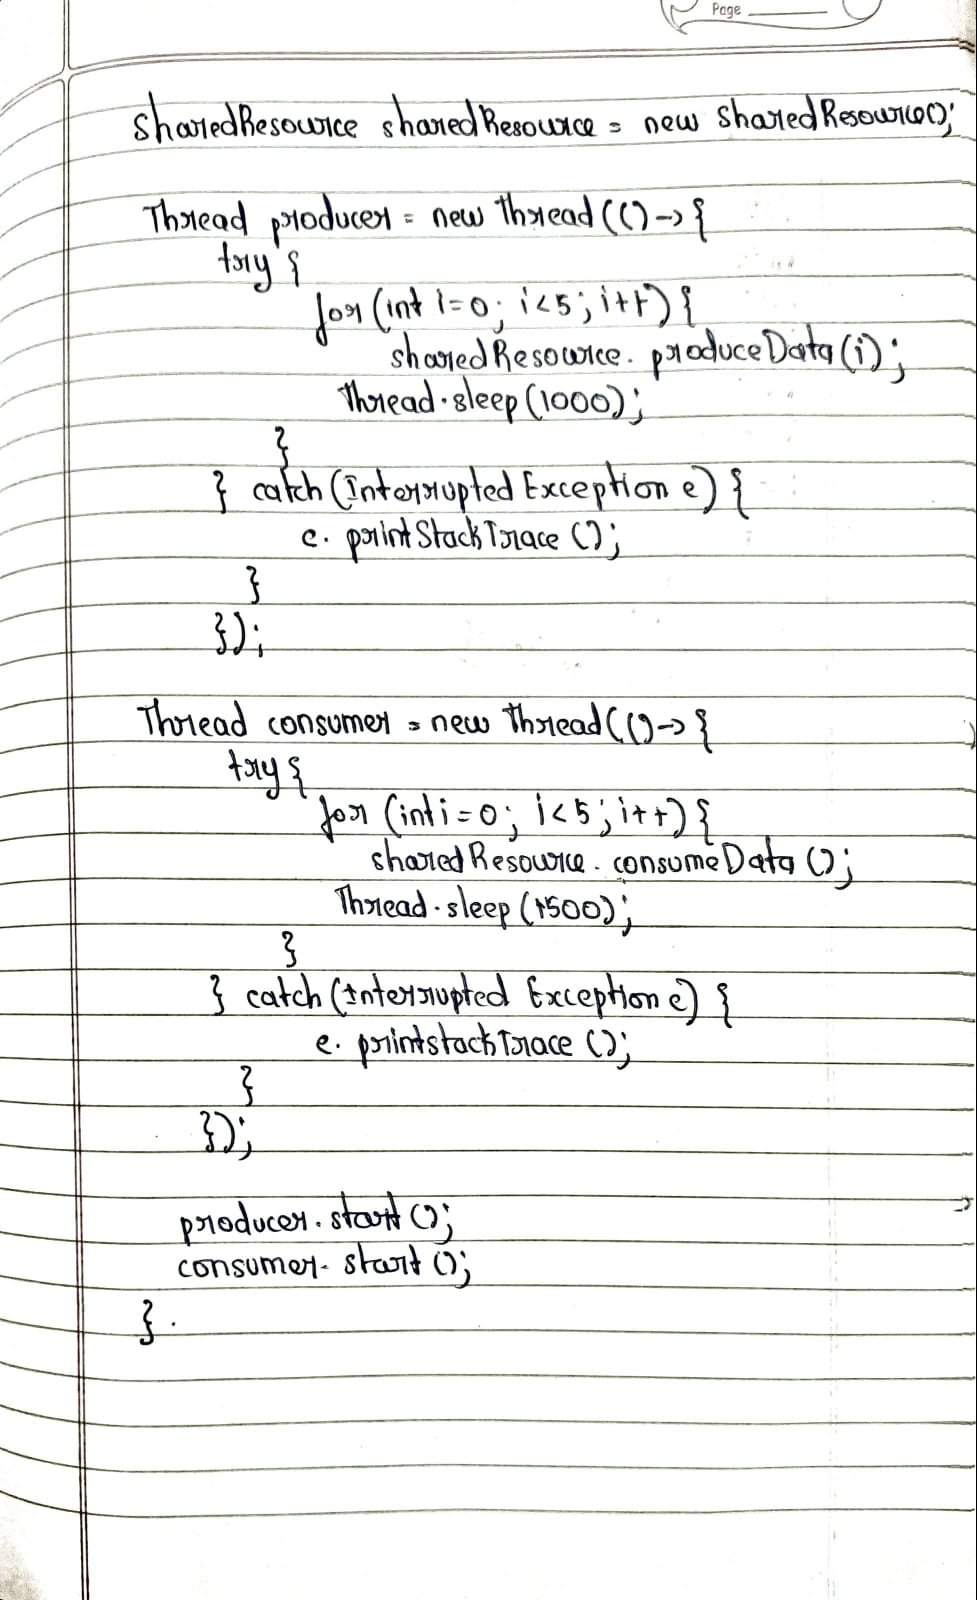 Page
sharedResource sharedResource = new sharedResource();
Thread producer = new thread(() -> {
try {
for (int i=0; i<5; i++) {
sharedResource. produceData(i);
Thread.sleep(1000);
}
} catch (Interrupted Exception e) {
e. printStackTrace ();
}
});
Thread consumer = new Thread(() -> {
try {
for (int i=0; i<5; i++) {
sharedResource. consumeData ();
Thread.sleep (1500);
}
} catch (Interrupted Exception e) {
e. printstackTrace ();
}
});
producer. start ();
consumer. start ();
}.